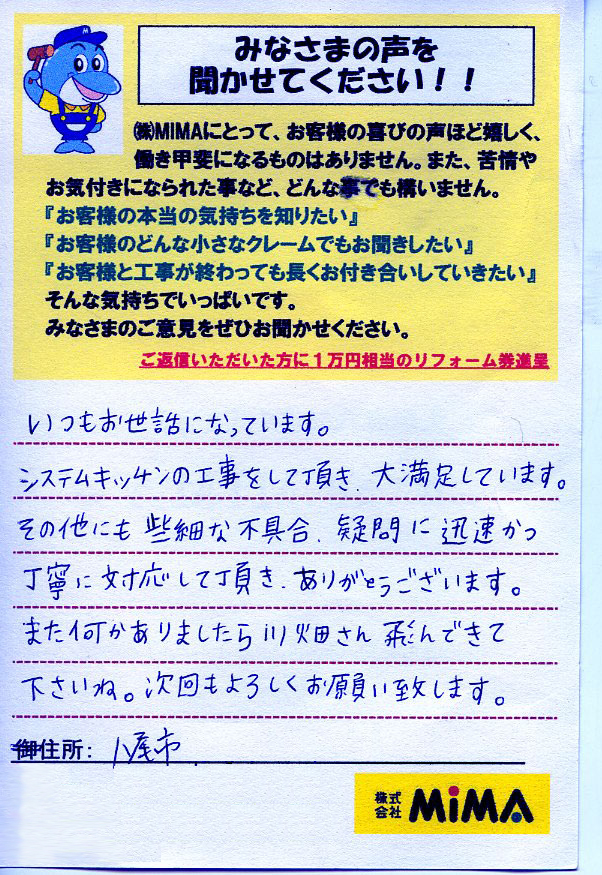 みなさまの声を
聞かせてください！！
㈱MIMAにとって、お客様の喜びの声ほど嬉しく、
働き甲斐になるものはありません。また、苦情や
お気付きになられた事など、どんな事でも構いません。
『お客様の本当の気持ちを知りたい』
『お客様のどんな小さなクレームでもお聞きしたい』
『お客様と工事が終わっても長くお付き合いしていきたい』
そんな気持ちでいっぱいです。
みなさまのご意見をぜひお聞かせください。
ご返信いただいた方に１万円相当のリフォーム券進呈
いつもお世話になっています。
システムキッチンの工事をして頂き、大満足しています。
その他にも些細な不具合、疑問に迅速かつ
丁寧に対応して頂き、ありがとうございます。
また何かありましたら川畑さん飛んできて
下さいね。次回もよろしくお願い致します。
御住所：八尾市
株式会社 MiMA